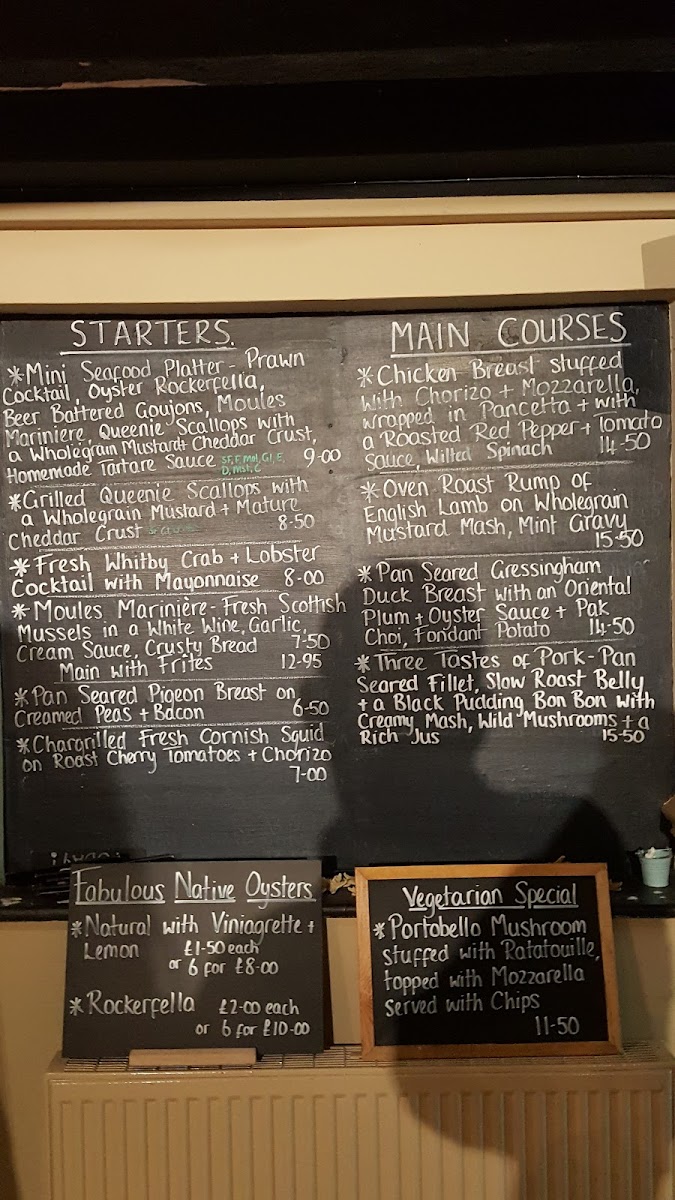 STARTERS.
*Mini Seafood Platter - Prawn
Cocktail, Oyster Rockerfella,
Beer Battered Goujons, Moules
Mariniere, Queenie Scallops with
a Wholegrain Mustard+ Cheddar Crust,
Homemade Tartare Sauce SF, F, Mol, Gl, E, 9-00
D, Mst, C
*Grilled Queenie Scallops with
a Wholegrain Mustard + Mature
Cheddar Crust 8-50
*Fresh Whitby Crab + Lobster
Cocktail with Mayonnaise 8-00
*Moules Marinière - Fresh Scottish
Mussels in a White Wine, Garlic,
Cream Sauce, Crusty Bread 7-50
Main with Frites 12-95
*Pan Seared Pigeon Breast on
Creamed Peas + Bacon 6-50
*Chargrilled Fresh Cornish Squid
on Roast Cherry Tomatoes + Chorizo
7-00
MAIN COURSES
*Chicken Breast stuffed
with Chorizo + Mozzarella,
wrapped in Pancetta + with
a Roasted Red Pepper + Tomato
Sauce, Wilted Spinach 14-50
*Oven Roast Rump of
English Lamb on Wholegrain
Mustard Mash, Mint Gravy
15-50
*Pan Seared Gressingham
Duck Breast with an Oriental
Plum + Oyster Sauce + Pak
Choi, Fondant Potato 14-50
*Three Tastes of Pork - Pan
Seared Fillet, Slow Roast Belly
+ a Black Pudding Bon Bon with
Creamy Mash, Wild Mushrooms + a
Rich Jus 15-50
Fabulous Native Oysters
*Natural with Viniagrette +
Lemon £1-50 each
or 6 for £8-00
*Rockerfella £2-00 each
or 6 for £10-00
Vegetarian Special
*Portobello Mushroom
stuffed with Ratatouille,
topped with Mozzarella
served with Chips
11-50